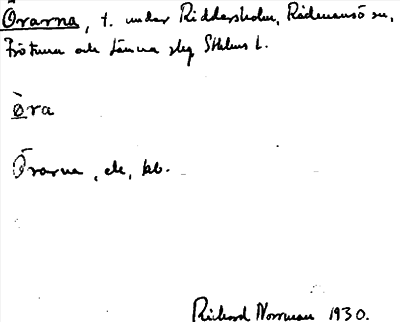 Örarna, t. under Riddersholm, Rådmansö sn,
Frötuna och Länna slg Sthlms l.
Öra
Örarna, ek, kb.
Rickard Norrman 1930.